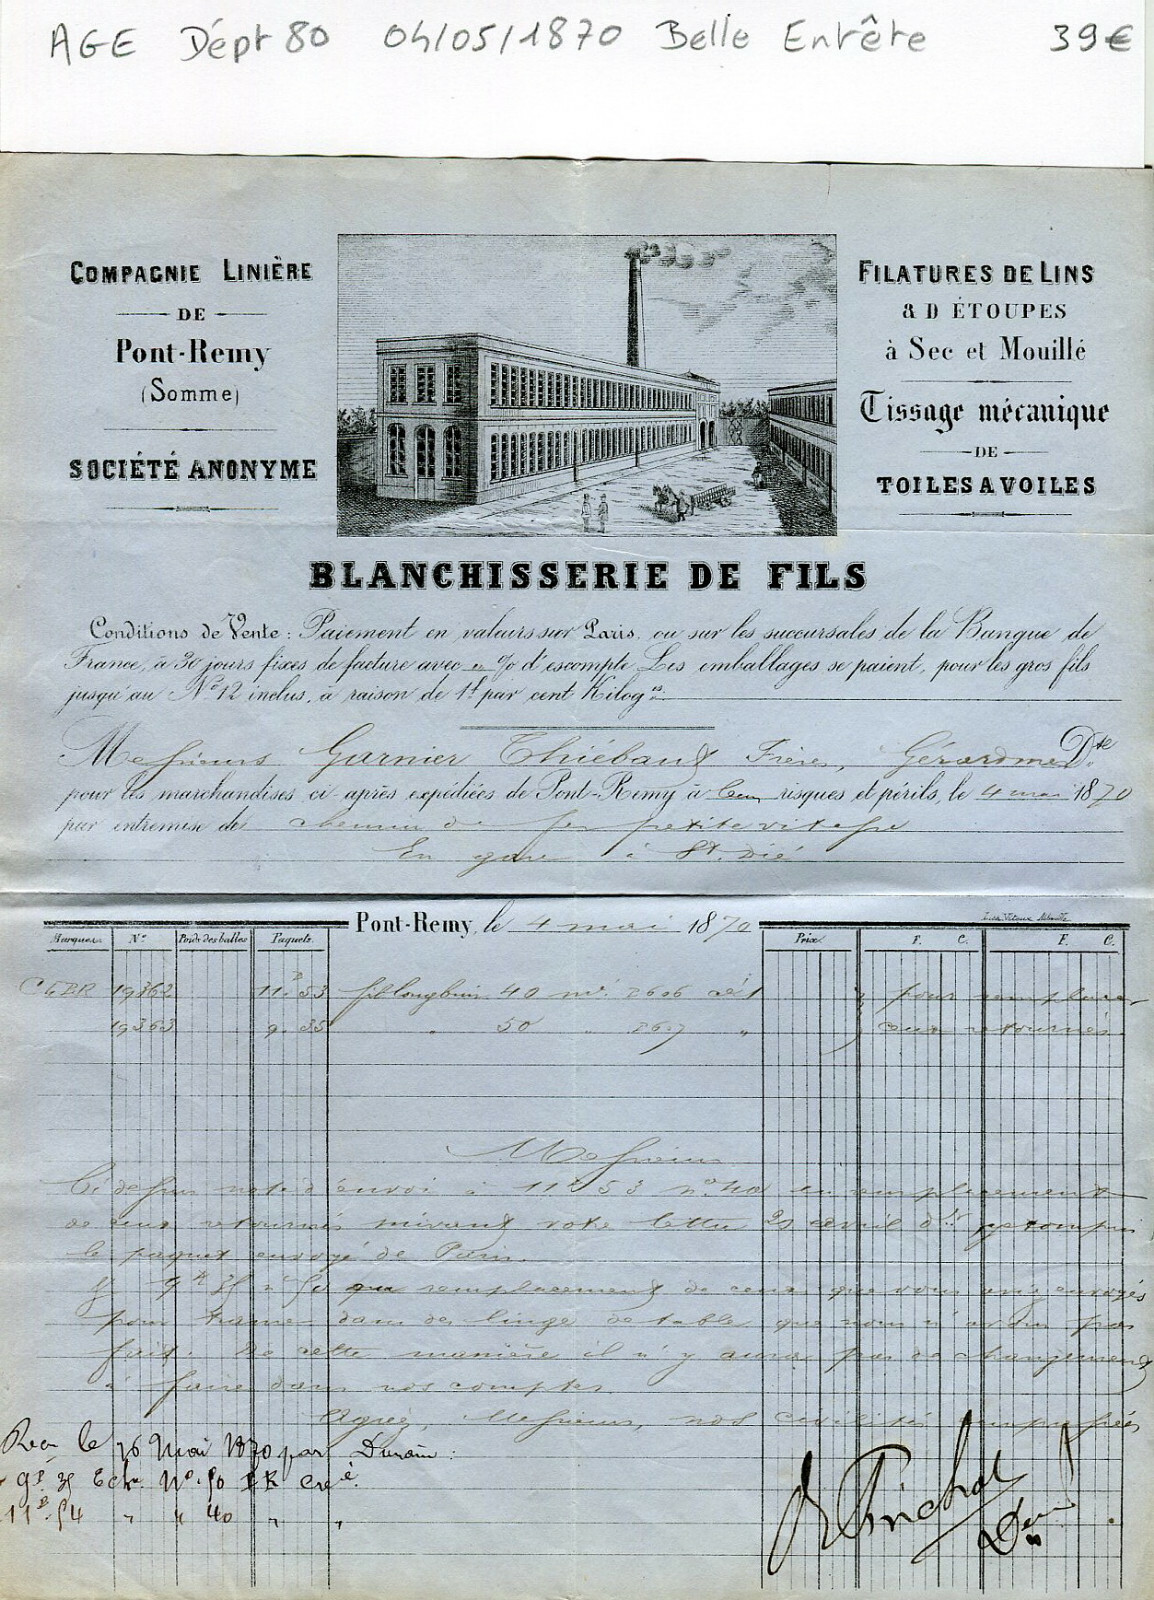 AGE Dépt 80 04/05/1870 Belle Entête 39€
COMPAGNIE LINIÈRE
DE
Pont-Remy
(Somme)
SOCIÉTÉ ANONYME
FILATURES DE LINS
& D ÉTOUPES
à Sec et Mouillé
Tissage mécanique
DE
TOILES A VOILES
BLANCHISSERIE DE FILS
Conditions de Vente: Paiement en valeurs sur Paris, ou sur les succursales de la Banque de
France, à 30 jours fixes de facture avec % d'escompte. Les emballages se paient, pour les gros fils
jusqu'au No 12 inclus, à raison de 1f par cent Kiloges
Messieurs Garnier Thiébaud Frères, Gérardmer Dt
pour les marchandises ci après expédiées de Pont-Remy à leurs risques et périls, le 4 mai 1870
par entremise de chemin de fer petite vitesse
En gare à St. Dié
Pont-Remy, le 4 mai 1870
Marques No Poids des balles Paquets Prix F. C. F. C.
19362 11 53 40 2606 pour remplacer
19363 9. 35 50 2607 " ceux retournés
Messieurs
Ci dessus note d'envoi à 11 53 no 40 en remplacement
de ceux retournés suivant votre lettre 21 avril
le paquet envoyé de Paris.
9 35 no 50 remplacement de ceux que vous avez envoyés
pour trame dans des linge de table que nous n'avons pas
fait. De cette manière il n'y aura pas de changement
à faire dans nos comptes.
Agréez, Messieurs, nos civilités empressées
Reçu le 26 Mai 1870 par
9 35 No. 50
11 54 " " 40 " "